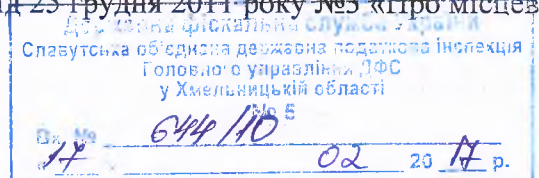 ід 23 грудня 2011 року №5 «Про місцев
Державна фіскальна служба України
Славутська об'єднана державна податкова інспекція
Головного управління ДФС
у Хмельницькій області
№ 5
Вх. № 644/10
17 02 20 17 р.